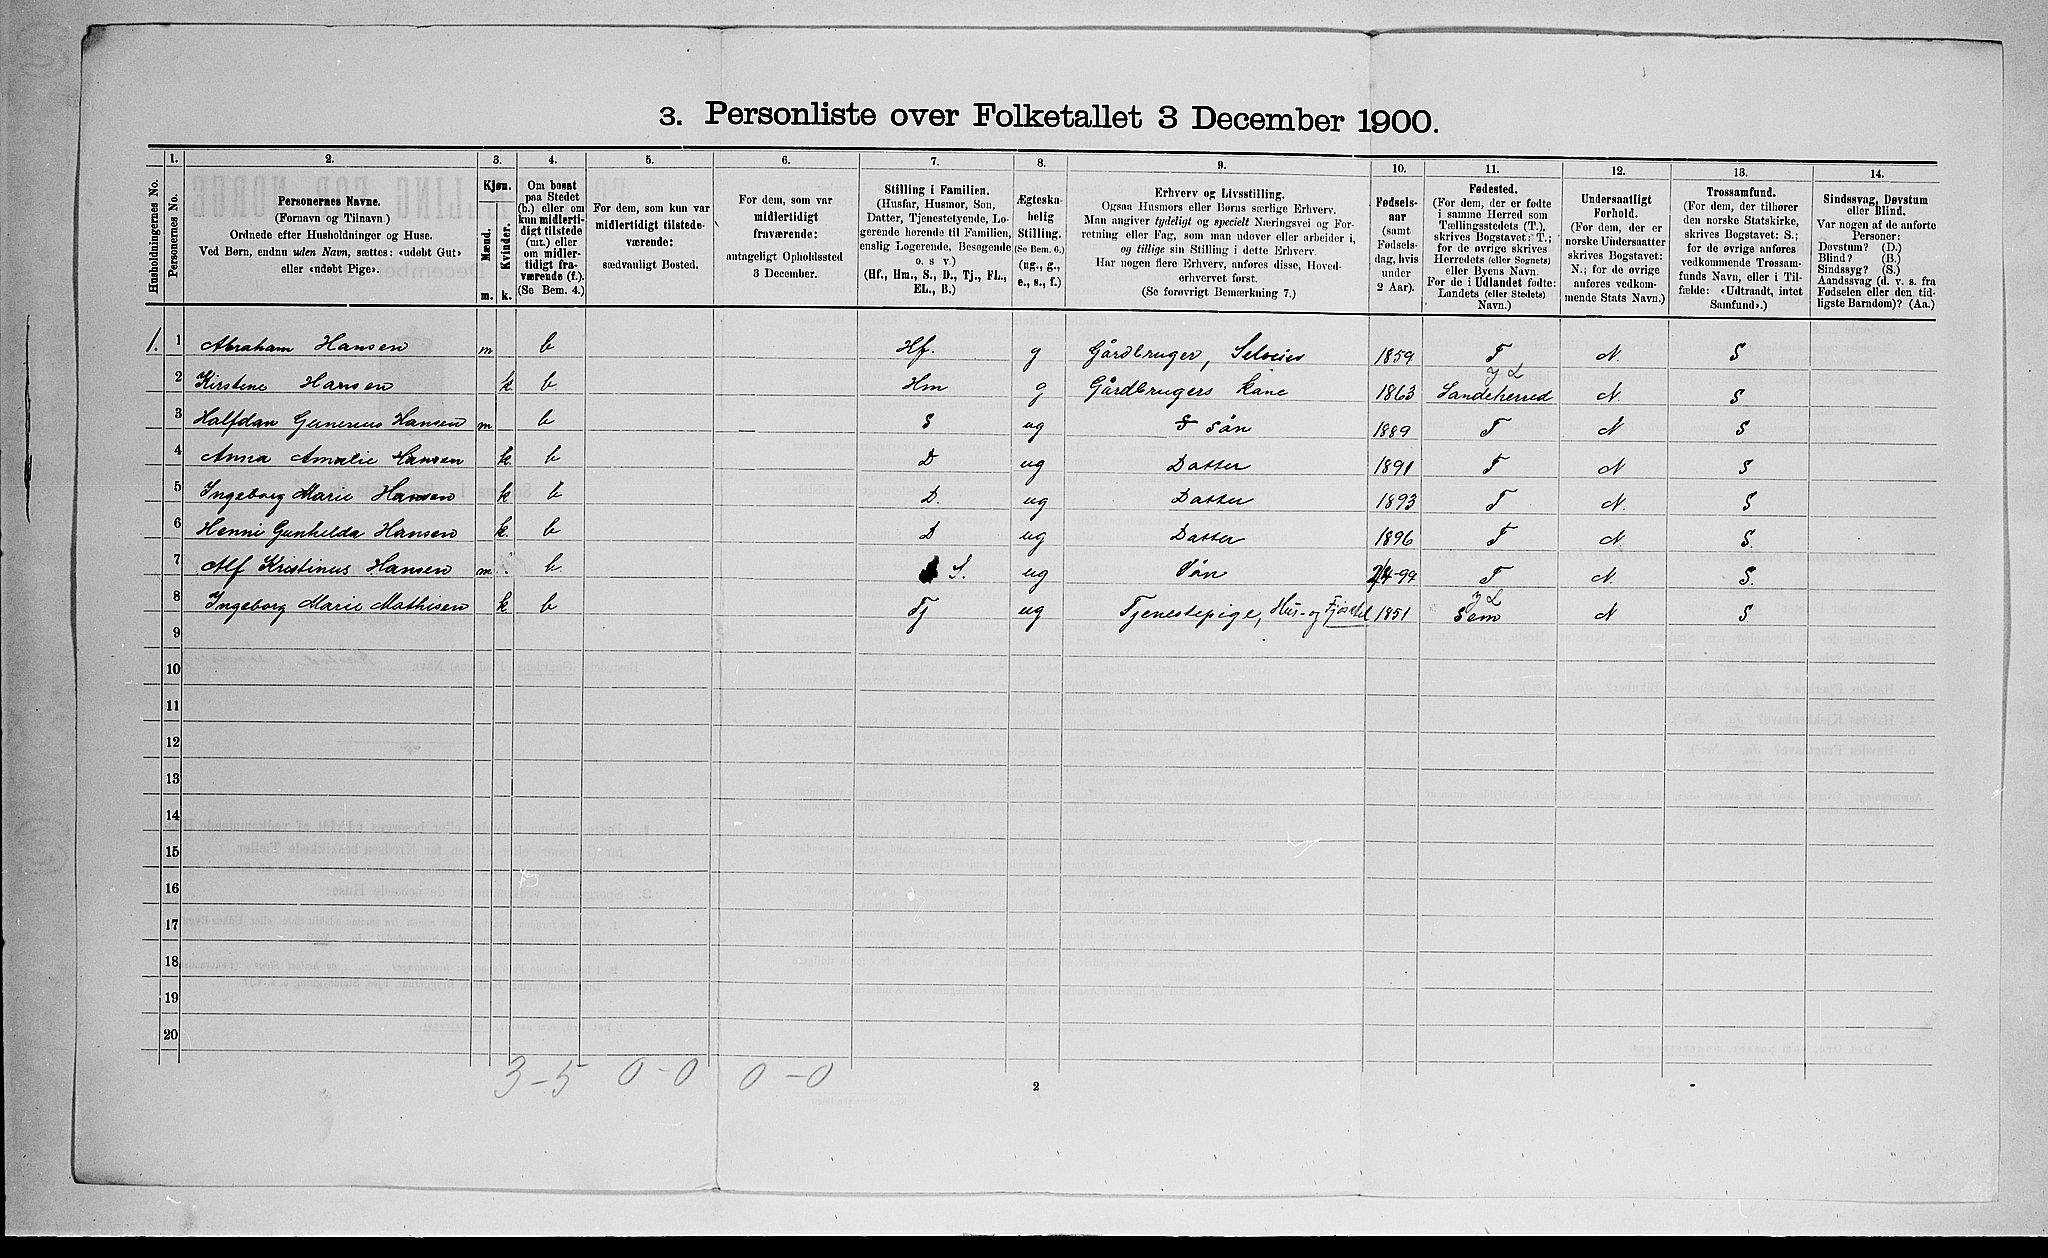 3. Personliste over Folketallet 3 December 1900.
Husholdningernes No.
1.
Personernes No.
2.
Personernes Navne.
(Fornavn og Tilnavn.)
Ordnede efter Husholdninger og Huse.
Ved Børn, endnu uden Navn, sættes: «udøbt Gut»
eller «udøbt Pige».
3.
Kjøn.
Mænd.
Kvinder.
m.
k.
4.
Om bosat
paa Stedet
(b.) eller om
kun midlerti-
digt tilstede
(mt.) eller
om midler-
tidigt fra-
værende (f.).
(Se Bem. 4.)
5.
For dem, som kun var
midlertidigt tilstede-
værende:
sædvanligt Bosted.
6.
For dem, som var
midlertidigt
fraværende:
antageligt Opholdssted
3 December.
7.
Stilling i Familien.
(Husfar, Husmor, Søn,
Datter, Tjenestetyende, Lo-
gerende hørende til Familien,
enslig Logerende, Besøgende
o. s. v.)
(Hf., Hm., S., D., Tj., FL.,
EL., B.)
8.
Ægteska-
belig
Stilling.
(Se Bem. 6.)
(ug., g.,
e., s., f.)
9.
Erhverv og Livsstilling.
Ogsaa Husmors eller Børns særlige Erhverv.
Man angiver tydeligt og specielt Næringsvei og For-
retning eller Fag, som man udøver eller arbeider i,
og tillige sin Stilling i dette Erhverv.
Har nogen flere Erhverv, anføres disse, Hoved-
erhvervet først.
(Se forøvrigt Bemærkning 7.)
10.
Fødsels-
aar
(samt
Fødsels-
dag, hvis
under
2 Aar).
11.
Fødested.
(For dem, der er fødte
i samme Herred som
Tællingsstedets (T.),
skrives Bogstavet: T.;
for de øvrige skrives
Herredets (eller Sognets)
eller Byens Navn.
For de i Udlandet fødte:
Landets (eller Stedets)
Navn.)
12.
Undersaatligt
Forhold.
(For dem, der er
norske Undersaatter
skrives Bogstavet:
N.; for de øvrige
anføres vedkom-
mende Stats Navn.)
13.
Trossamfund.
(For dem, der tilhører
den norske Statskirke,
skrives Bogstavet: S.;
for de øvrige anføres
vedkommende Trossam-
funds Navn, eller i Til-
fælde: «Udtraadt, intet
Samfund».)
14.
Sindssvag, Døvstum
eller Blind.
Var nogen af de anførte
Personer:
Døvstum? (D.)
Blind? (B.)
Sindssyg? (S.)
Aandssvag (d. v. s. fra
Fødselen eller den tid-
ligste Barndom)? (Aa.)
1. 1 Abraham Hansen m b Hf. g Gårdbruger, Selveier 1859 T N. S
2 Kirstine Hansen k. b. Hm g Gårdbrugers kane 1863 Sandeherred N. S
3 Halfdan Gunerius Hansen m b S ug Søn 1889 T N S
4 Anna Amalie Hansen k. b D ug Datter 1891 T N S
5 Ingeborg Marie Hansen k b D. ug Datter 1893 T N. S
6 Henni Gunhilda Hansen k. b D ug Datter 1896 T N S.
7 Alf Kristinus Hansen m b. S. ug Søn 2/4-99 T N. S.
8 Ingeborg Marie Mathisen k. b Tj ug Tjenestepige, Hus- og Fjøsstel 1851 Sem N S
9
10
11
12
13
14
15
16
17
18
19
20
3-5 0-0 0-0
2